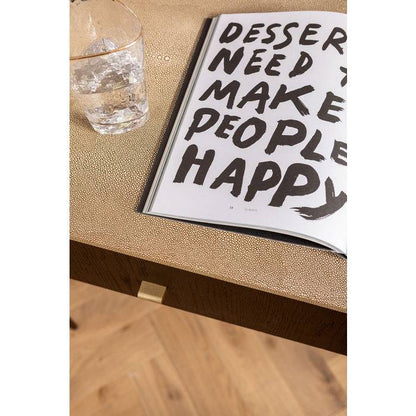 DESSER
NEED T
MAKE
PEOPLE
HAPPY